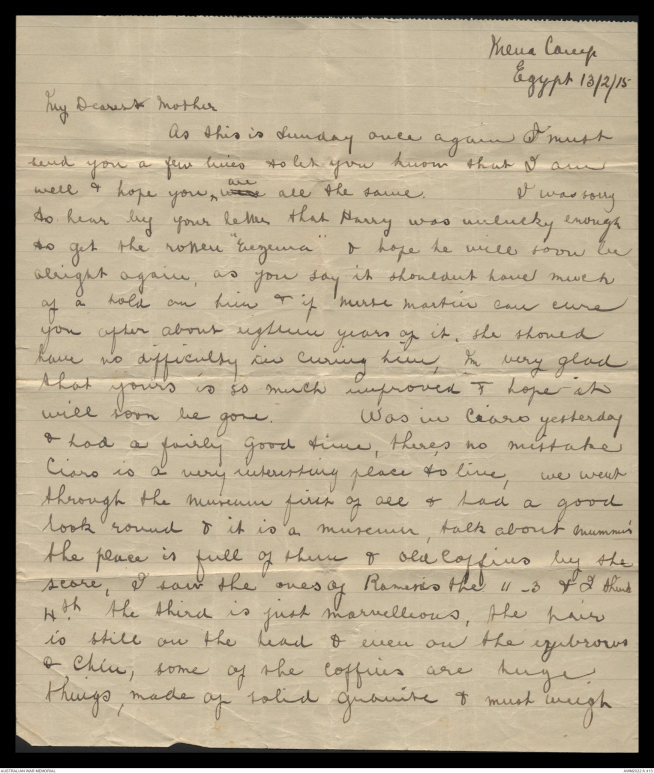 Mena Camp
Egypt 13/2/15
My Dearest Mother
As this is Sunday once again I must
send you a few lines to let you know that I am
well & hope you, were are all the same. I was sorry
to hear by your letter that Harry was unlucky enough
to get the rotten "Eczema" & hope he will soon be
alright again, as you say it shouldnt have much
of a hold on him & if nurse martin can cure
you after about eighteen years of it, she should
have no difficulty in curing him, Im very glad
that yours is so much improved & hope it
will soon be gone. Was in Ciaro yesterday
& had a fairly good time, theres no mistake
Ciaro is a very interesting place to live, we went
through the museum first of all & had a good
look round & it is a museum, talk about mummis
the place is full of them & old Coffins by the
score, I saw the ones of Rameses the 11 - 3 & I think
4th. the third is just marvellious, the hair
is still on the head & even on the eyebrows
& Chin, some of the Coffins are huge
things, made of solid granite & must weigh
AUSTRALIAN WAR MEMORIAL